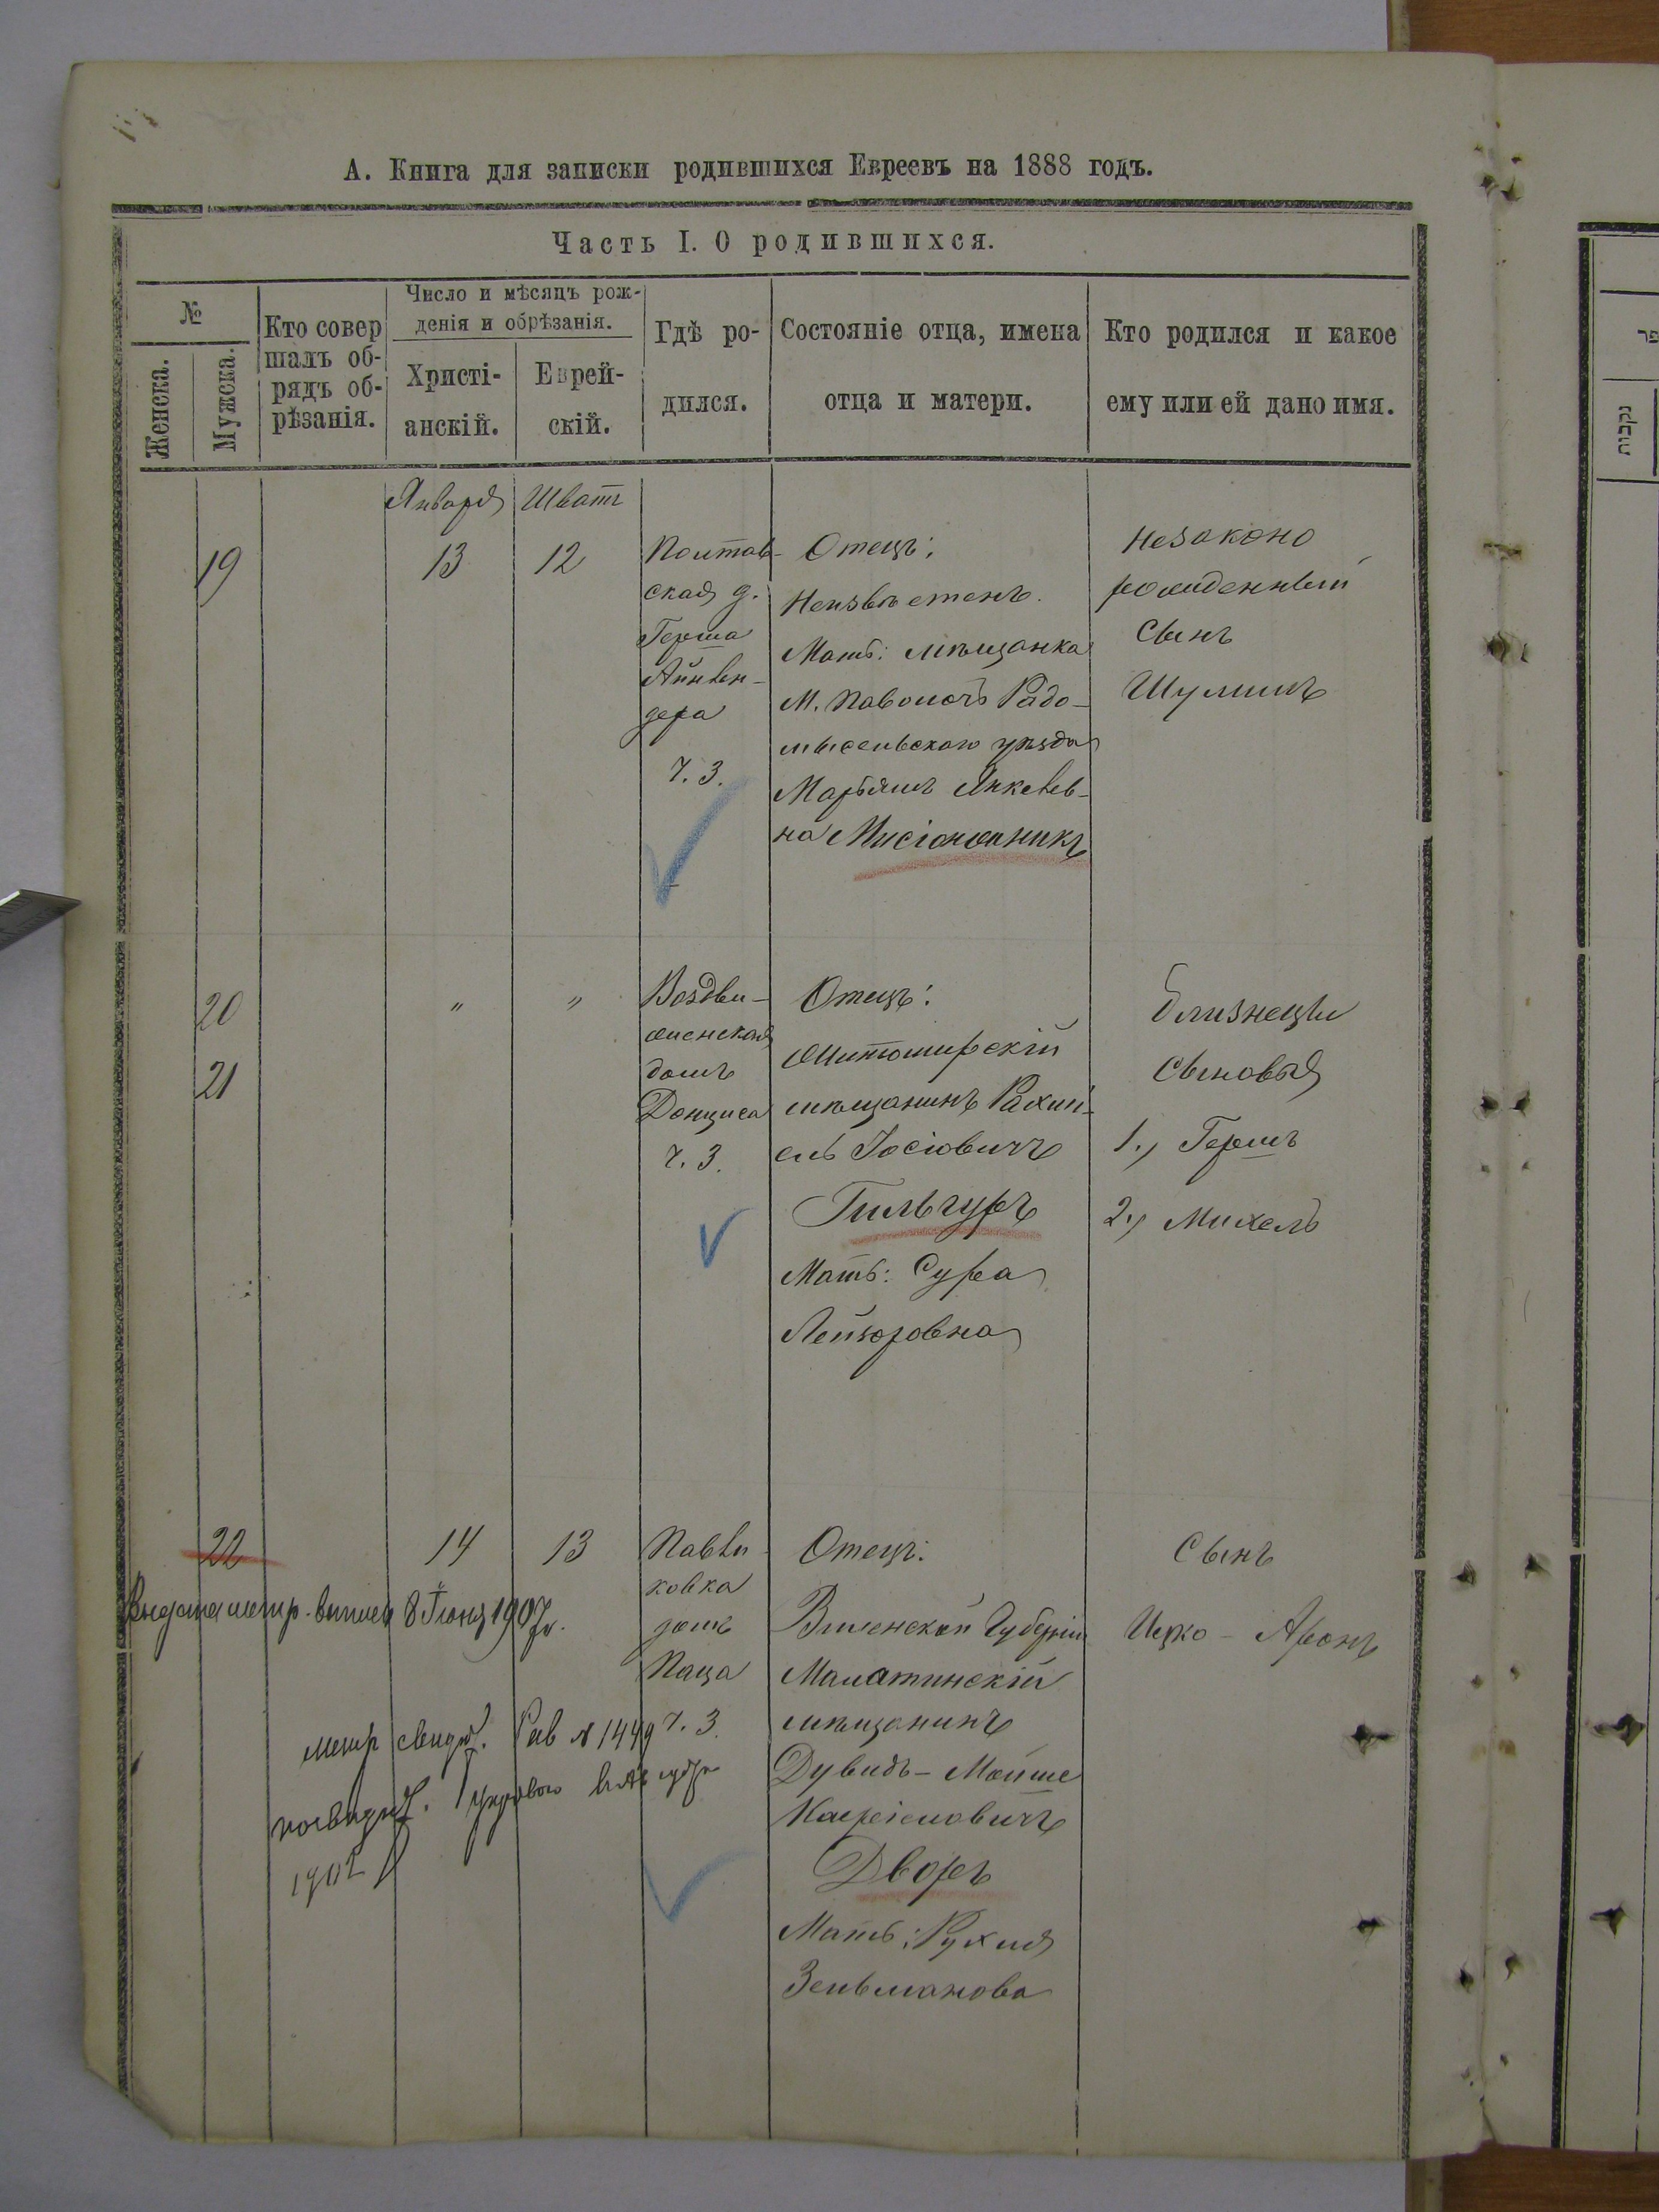 А. Книга для записки родившихся Евреевъ на 1888 годъ.
Часть I. О родившихся.
№
Женска.
Мужска.
Кто совер
шалъ об-
рядъ об-
рѣзанія.
Число и мѣсяцъ рож-
денія и обрѣзанія.
Христі-
анскій.
Еврей-
скій.
Гдѣ ро-
дился.
Состояніе отца, имена
отца и матери.
Кто родился и какое
ему или ей дано имя.
Января
Шватъ
19
13
12
Полтав-
ская д.
Герша
Айнвен-
дера
ч. 3.
Отецъ:
Неизвѣстенъ.
Мать: мѣщанка
М. Паволочь Радо-
мысельскаго уѣзда
Марьямъ Янкелев-
на Мисіонжникъ
Незаконо
рожденный
Сынъ
Шулимъ
20
21
"
"
Воздви-
женская
домъ
Донциса
ч. 3.
Отецъ:
Житомирскій
мѣщанинъ Рахми-
ель Іосіовичъ
Гильгуръ
Мать: Сура
Лейзоровна
близнецы
Сыновья
1., Гершъ
2., Михель
22
14
13
Павли-
ковка
домъ
Паца
ч. 3.
Отецъ:
Виленской Губерніи
Малатинскій
мѣщанинъ
Дувидъ-Мойше
Каеріеловичъ
Дворъ
Мать: Рухля
Зельманова
Сынъ
Ицко-Аронъ
Выдана метр. выпись 8 Іюня 1907 г.
метр свид. Рав № 1449
1902
נקבות